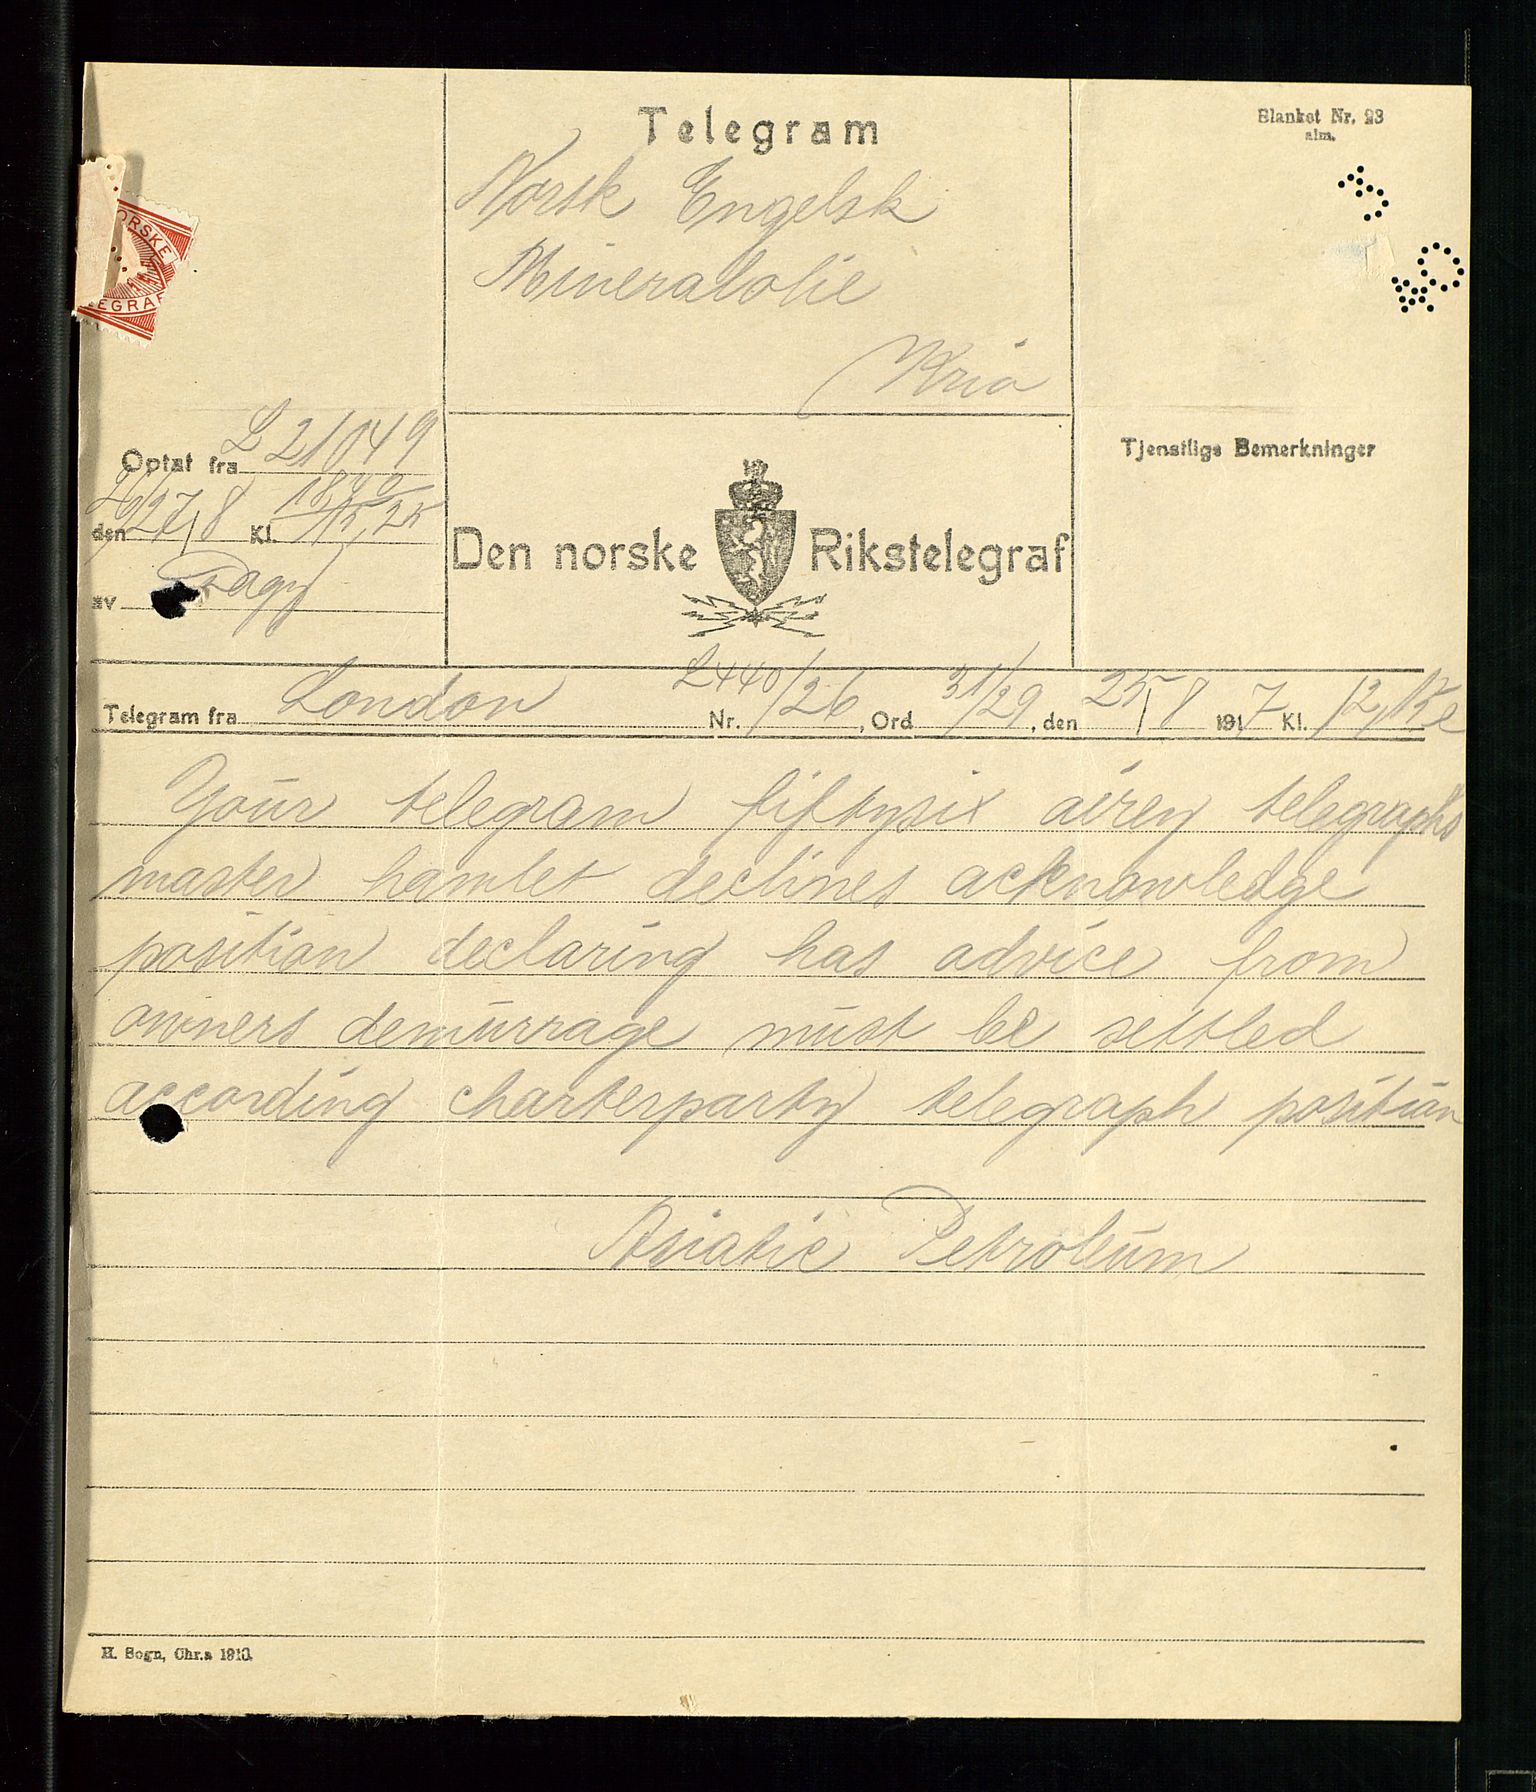 Telegram
Blanket Nr. 23
alm.
Norsk Engelsk
Mineralolie
Kria
ORSKE
EGRAF
Optat fra L 21049
den 27/8 Kl. 15,25
av
Den norske Rikstelegraf
Tjenstlige Bemerkninger
Telegram fra London Nr. L440/26, Ord 31/29, den 25/8 1917 Kl. 12,15 e
Your telegram fiftysix airey telegraphs
master hamlet declines acknowledge
position declaring has advice from
owners demurrage must be settled
according charterparty telegraph position
Asiatic Petroleum
H. Sogn, Chr.a 1913.